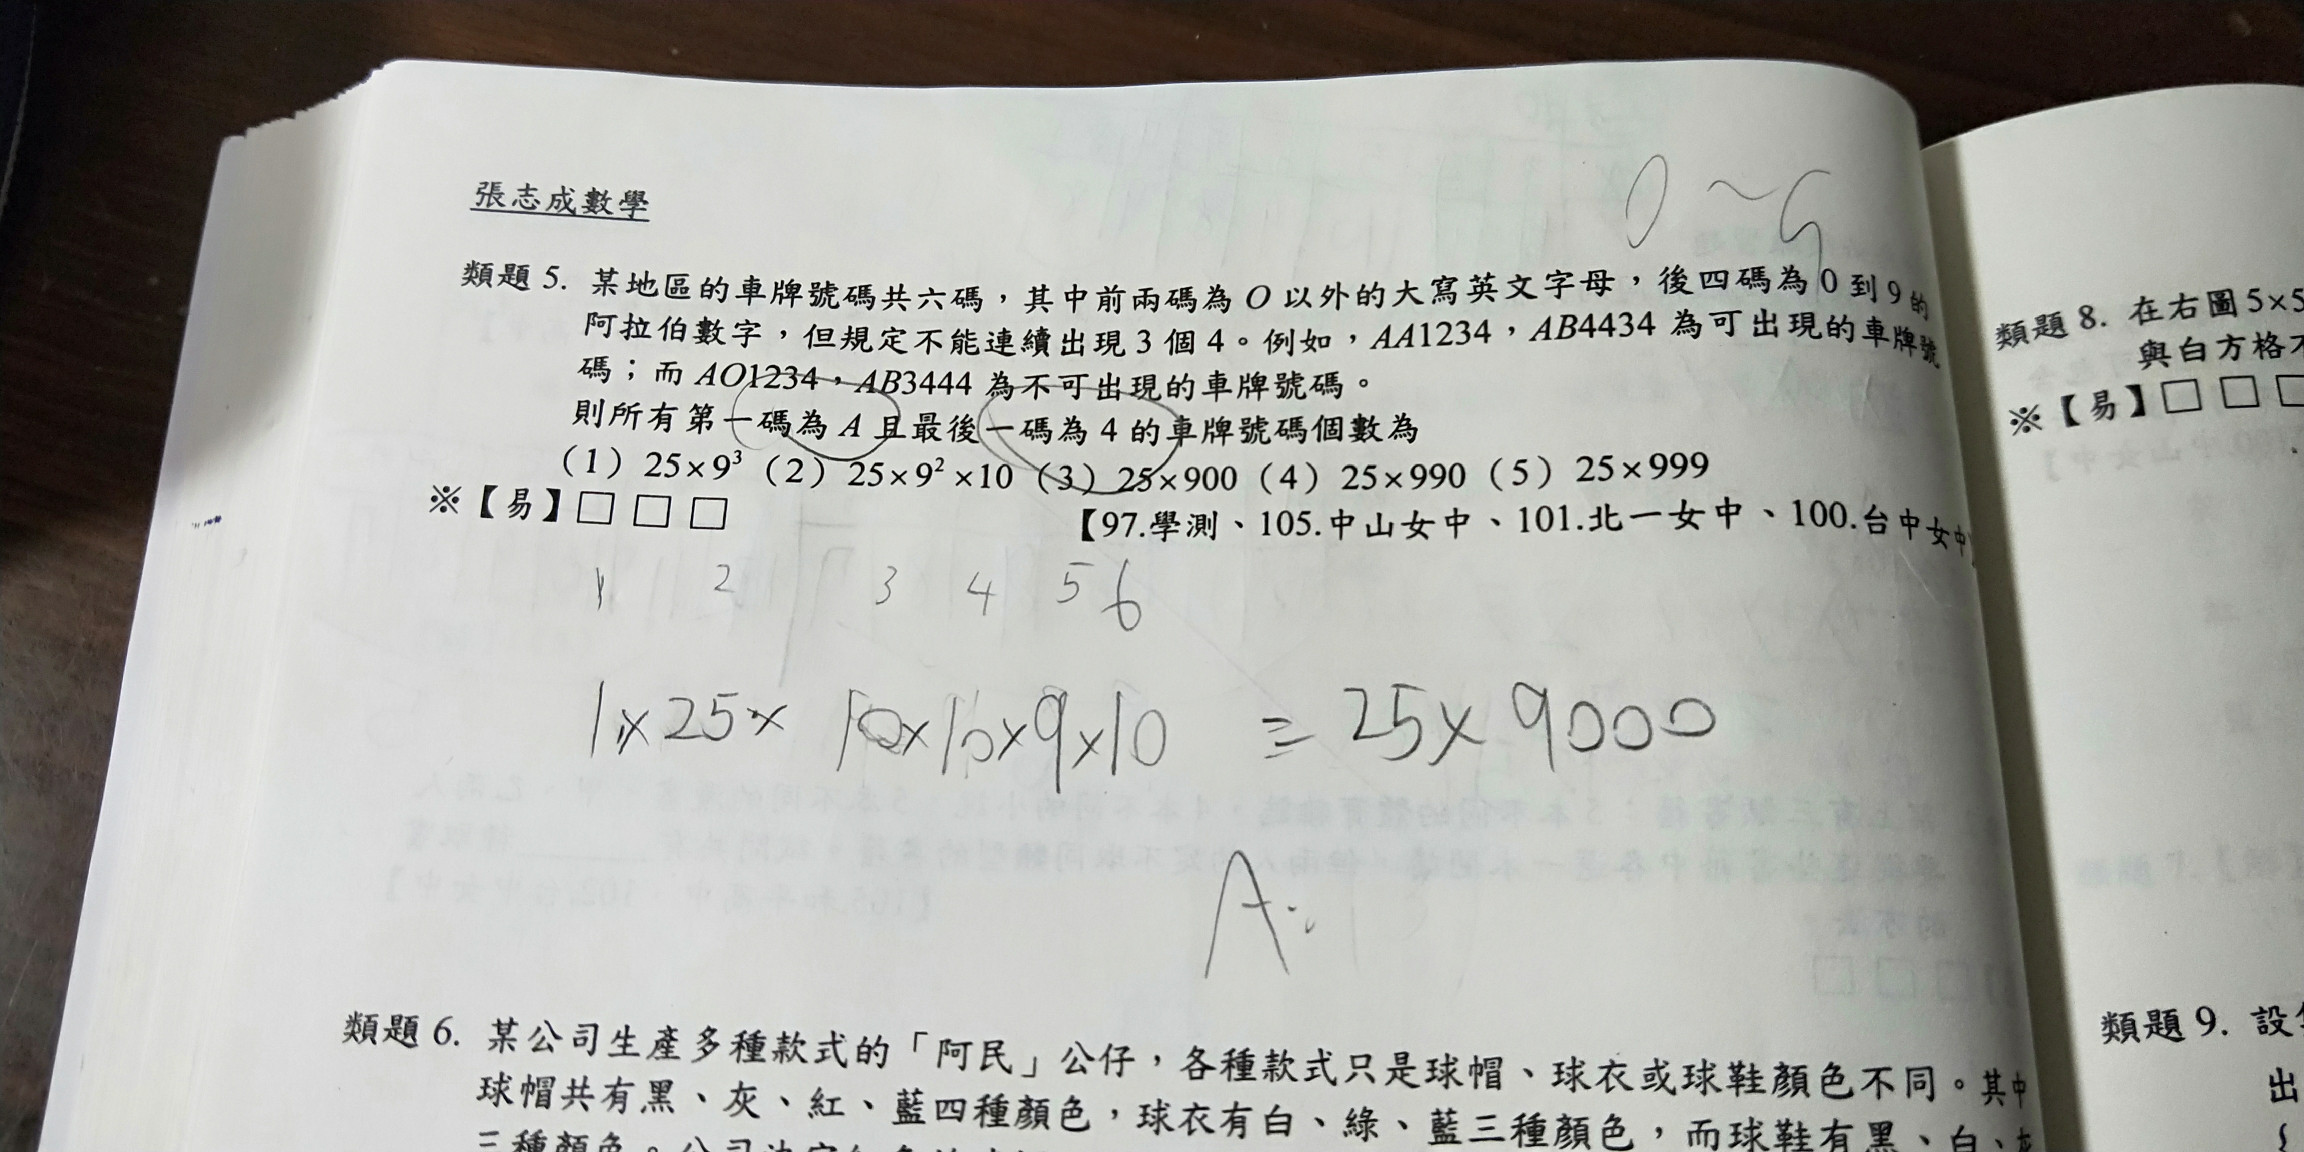 張志成數學
0~9
類題 5. 某地區的車牌號碼共六碼，其中前兩碼為 O 以外的大寫英文字母，後四碼為 0 到 9 的
阿拉伯數字，但規定不能連續出現 3 個 4。例如，AA1234，AB4434 為可出現的車牌號
碼；而 AO1234，AB3444 為不可出現的車牌號碼。
則所有第一碼為 A 且最後一碼為 4 的車牌號碼個數為
(1) 25×9³ (2) 25×9²×10 (3) 25×900 (4) 25×990 (5) 25×999
※【易】□ □ □
【97.學測、105.中山女中、101.北一女中、100.台中女中】
1 2 3 4 5 6
1×25× 10×10×9×10 = 25×9000
A:
類題 6. 某公司生產多種款式的「阿民」公仔，各種款式只是球帽、球衣或球鞋顏色不同。其中
球帽共有黑、灰、紅、藍四種顏色，球衣有白、綠、藍三種顏色，而球鞋有黑、白、灰
三種顏色。
類題 8. 在右圖 5×5
與白方格不
※【易】□ □ □
類題 9. 設
出